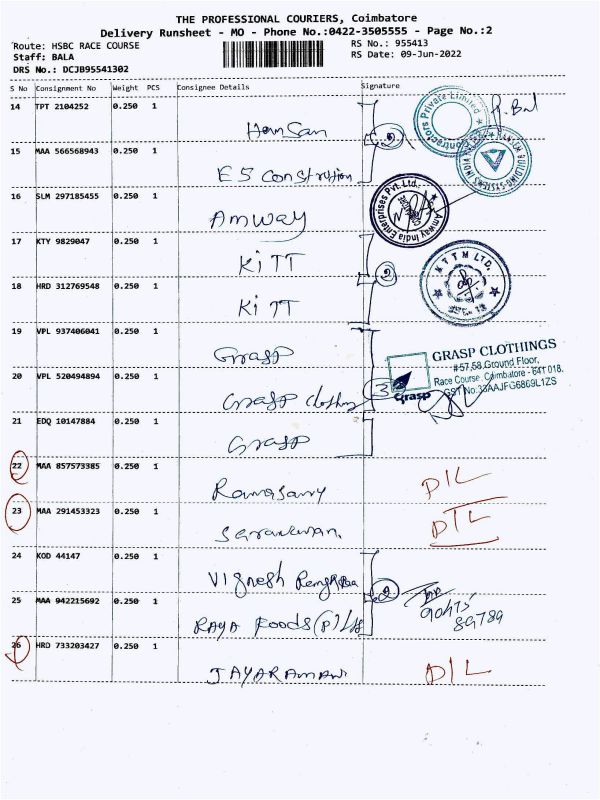 THE PROFESSIONAL COURIERS, Coimbatore
Delivery Runsheet - MO - Phone No.:0422-3505555 - Page No.:2
Route: HSBC RACE COURSE RS No.: 955413
Staff: BALA RS Date: 09-Jun-2022
DRS No.: DCJB95541302
S No Consignment No Weight PCS Consignee Details Signature
14 TPT 2104252 0.250 1
15 MAA 566568943 0.250 1
16 SLM 297185455 0.250 1 Amway
17 KTY 9829047 0.250 1 KiTT
18 HRD 312769548 0.250 1 KiTT
19 VPL 937406041 0.250 1 Grasp
20 VPL 520494894 0.250 1 Grasp clothing
21 EDQ 10147884 0.250 1 Grasp
22 MAA 857573385 0.250 1 D/L
23 MAA 291453323 0.250 1 D/L
24 KOD 44147 0.250 1 Vignesh
25 MAA 942215692 0.250 1 RAYA Foods (P) Ltd
26 HRD 733203427 0.250 1 JAYARAMAN D/L
ontractors Private Limited
BUILDING SYSTEMS INDIA
Amway India Enterprises Pvt. Ltd.
K T T M LTD.
3
GRASP CLOTHINGS
#57,58,Ground Floor,
Race Course, Coimbatore - 641 018.
GST No:33AAJFG6869L1ZS
Grasp